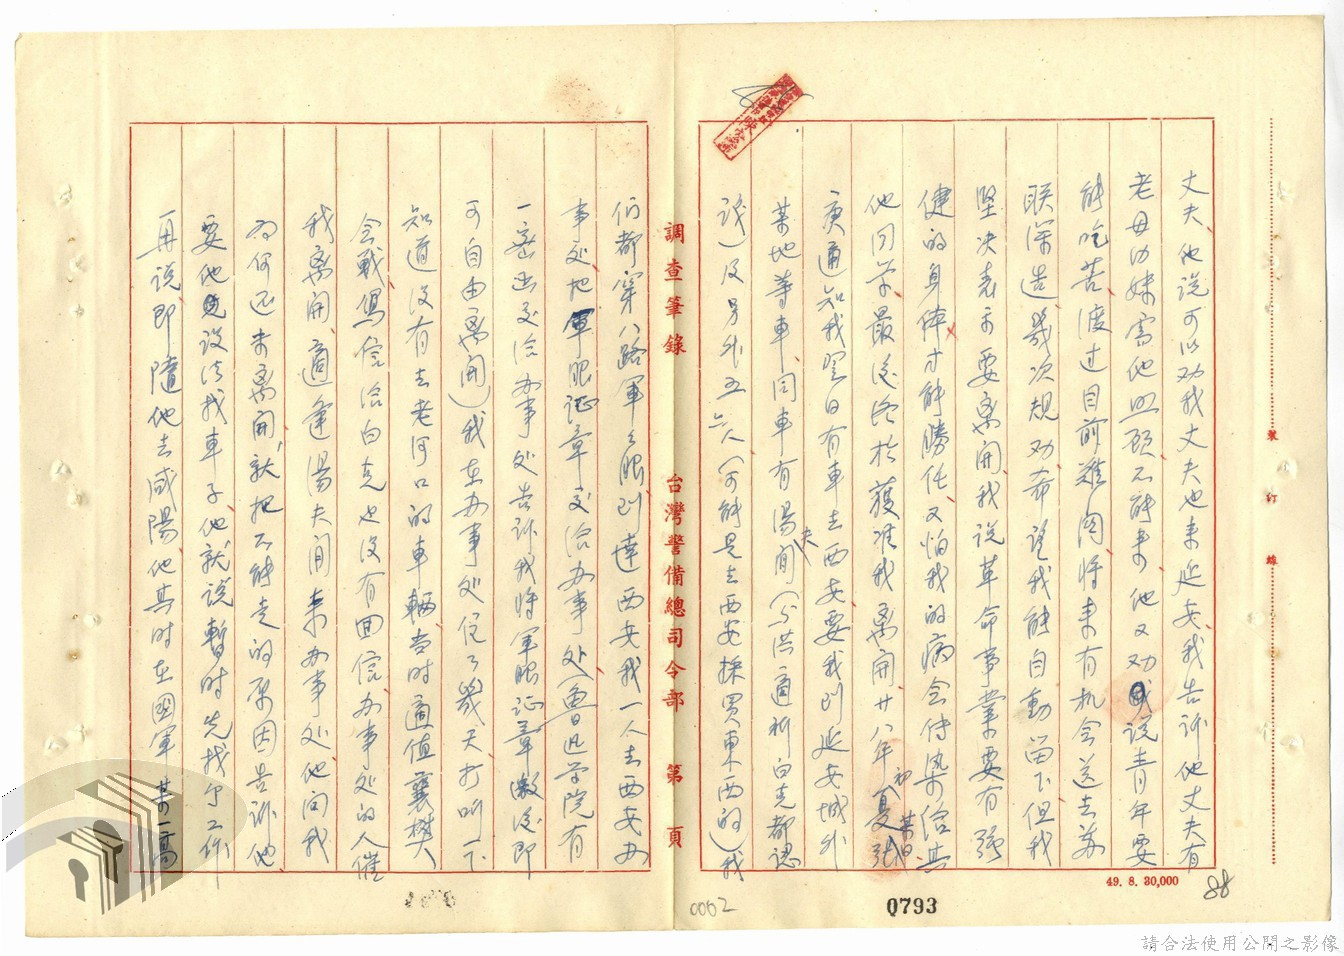 丈夫、他说可以劝我丈夫也来延安、我告訴他丈夫有
老母幼妹需他照顾不能来、他又劝我说青年要
能吃苦、渡过目前难関、将来有机会送去苏
联深造、幾次规劝希望我能自動留下、但我
坚决表示要离開、我说革命事業要有强
健的身体才能勝任、又怕我的病会传染给其
他同学、最後终於獲准我离開、廿八年初夏某日張
庚通知我翌日有車去西安、要我到延安城外
某地等車、同車有湯夫開（与洪適析白克都認
识）及另外五六人（可能是去西安採買東西的）我
調查筆錄　台灣警備總司令部　第　頁
们都穿八路軍之服、到達西安我一人去西安办
事处、地軍服证章交给办事处（魯迅学院有
一密函交给办事处告訴我将軍服证章缴後即
可自由离開）我在办事处住了幾天、打听一下
知道没有去老河口的車輛、当时適值襄樊
会戰、寫信给白克也没有回信、办事处的人催
我离開、適逢湯夫開来办事处、他问我
为何还未离開、就把不能走的原因告訴他
要他設法找車子、他就说暫时先找个工作
再说、即隨他去咸陽、他其时在國軍某一高
49. 8. 30,000
裝訂線
88
0062
0793
請合法使用公開之影像